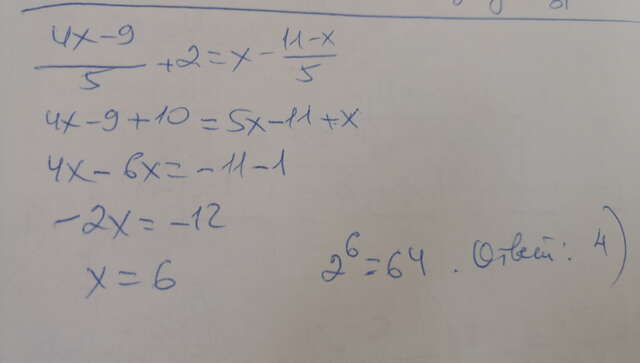 (4x-9)/5 + 2 = x - (11-x)/5
4x-9+10=5x-11+x
4x-6x=-11-1
-2x=-12
x=6
2^6=64. Ответ: 4)